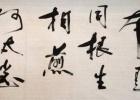 本是
同根生
相煎
何太急